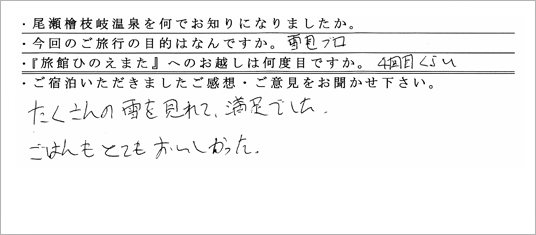 ・尾瀬檜枝岐温泉を何でお知りになりましたか。
・今回のご旅行の目的はなんですか。雪見フロ
・『旅館ひのえまた』へのお越しは何度目ですか。4回目くらい
・ご宿泊いただきましたご感想・ご意見をお聞かせ下さい。
たくさんの雪を見れて、満足でした。
ごはんもとてもおいしかった。